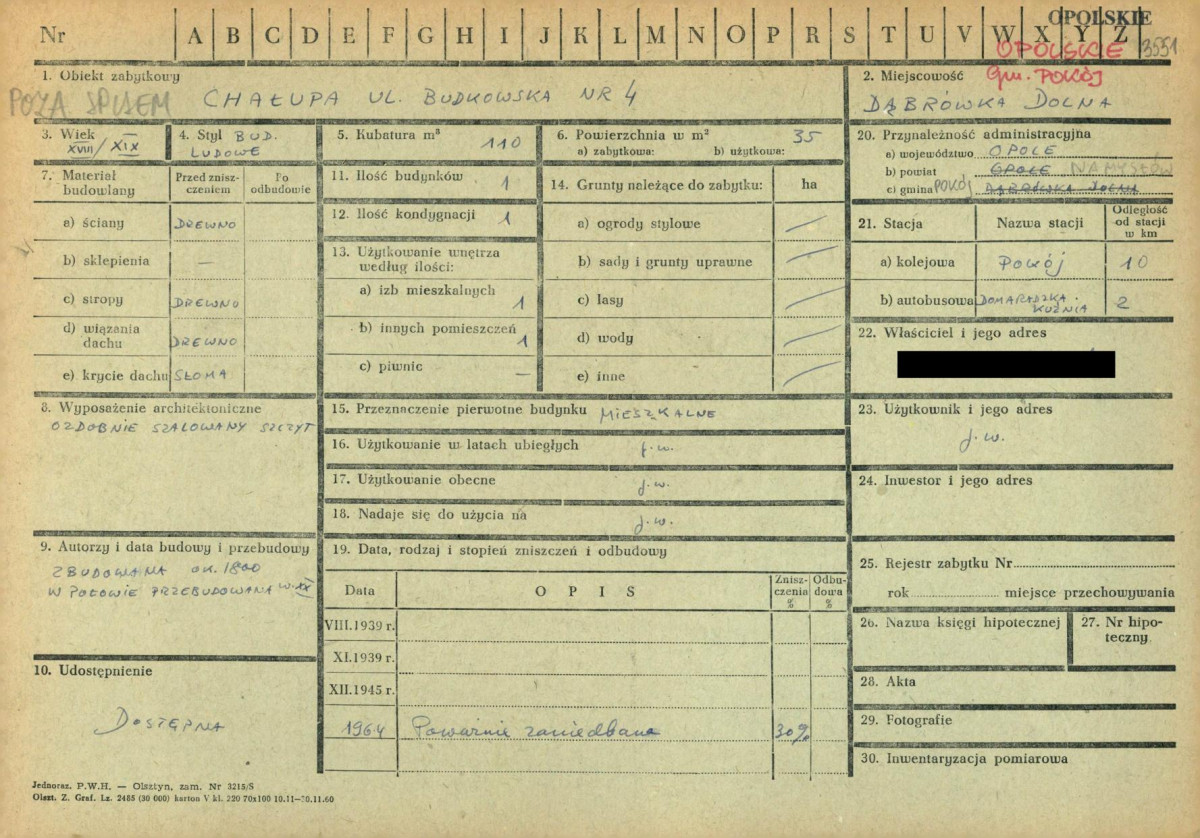 OPOLSKIE
Nr A B C D E F G H I J K L M N O P R S T U V W X Y Z
OPOLSKIE 3551
1. Obiekt zabytkowy
POZA SPISEM CHAŁUPA UL. BUDKOWSKA NR 4
2. Miejscowość Gm. POKÓJ
DĄBRÓWKA DOLNA
3. Wiek
XVIII/XIX
4. Styl BUD.
LUDOWE
5. Kubatura m³
110
6. Powierzchnia w m² 35
a) zabytkowa: b) użytkowa:
7. Materiał budowlany
Przed zniszczeniem
Po odbudowie
a) ściany DREWNO
b) sklepienia —
c) stropy DREWNO
d) wiązania dachu DREWNO
e) krycie dachu SŁOMA
8. Wyposażenie architektoniczne
OZDOBNIE SZALOWANY SZCZYT
9. Autorzy i data budowy i przebudowy
ZBUDOWANA OK. 1800
W POŁOWIE PRZEBUDOWANA W. XX
10. Udostępnienie
DOSTĘPNA
11. Ilość budynków 1
12. Ilość kondygnacji 1
13. Użytkowanie wnętrza
według ilości:
a) izb mieszkalnych 1
b) innych pomieszczeń 1
c) piwnic —
14. Grunty należące do zabytku: ha
a) ogrody stylowe
b) sady i grunty uprawne
c) lasy
d) wody
e) inne
15. Przeznaczenie pierwotne budynku MIESZKALNE
16. Użytkowanie w latach ubiegłych j.w.
17. Użytkowanie obecne j.w.
18. Nadaje się do użycia na j.w.
19. Data, rodzaj i stopień zniszczeń i odbudowy
Data OPIS Zniszczenia % Odbudowa %
VIII.1939 r.
XI.1939 r.
XII.1945 r.
1964 Poważnie zaniedbana 30%
20. Przynależność administracyjna
a) województwo OPOLE
b) powiat OPOLE NAMYSŁÓW
c) gmina POKÓJ DĄBRÓWKA DOLNA
21. Stacja Nazwa stacji Odległość od stacji w km
a) kolejowa POKÓJ 10
b) autobusowa DOMARADZKA KUŹNIA 2
22. Właściciel i jego adres
23. Użytkownik i jego adres
j.w.
24. Inwestor i jego adres
25. Rejestr zabytku Nr
rok miejsce przechowywania
26. Nazwa księgi hipotecznej
27. Nr hipoteczny
28. Akta
29. Fotografie
30. Inwentaryzacja pomiarowa
Jednoraz. P.W.H. — Olsztyn, zam. Nr 3215/S
Olszt. Z. Graf. Lz. 2485 (30 000) karton V kl. 220 70x100 10.11—30.11.60